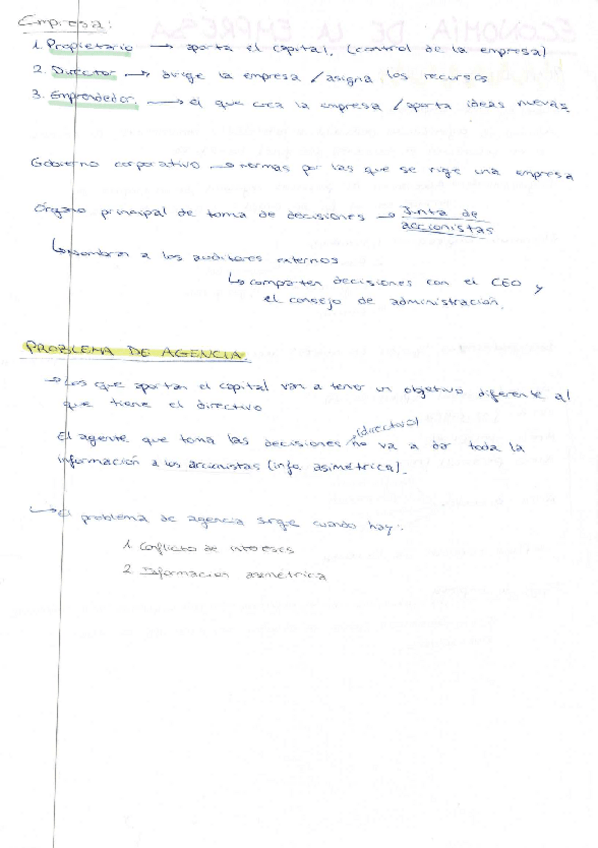 Empresa:
1. Propietario → aporta el capital. (control de la empresa)
2. Director → dirige la empresa / asigna los recursos
3. Emprendedor: → el que crea la empresa / aporta ideas nuevas
Gobierno corporativo → normas por las que se rige una empresa
Órgano principal de toma de decisiones → Junta de
accionistas
↳ nombran a los auditores externos
↳ comparten decisiones con el CEO y
el consejo de administración.
PROBLEMA DE AGENCIA.
→ Los que aportan el capital van a tener un objetivo diferente al
que tiene el directivo
(directivo)
El agente que toma las decisiones no va a dar toda la
información a los accionistas (info. asimétrica).
↳ El problema de agencia surge cuando hay:
1 Conflicto de intereses
2 Información asimétrica